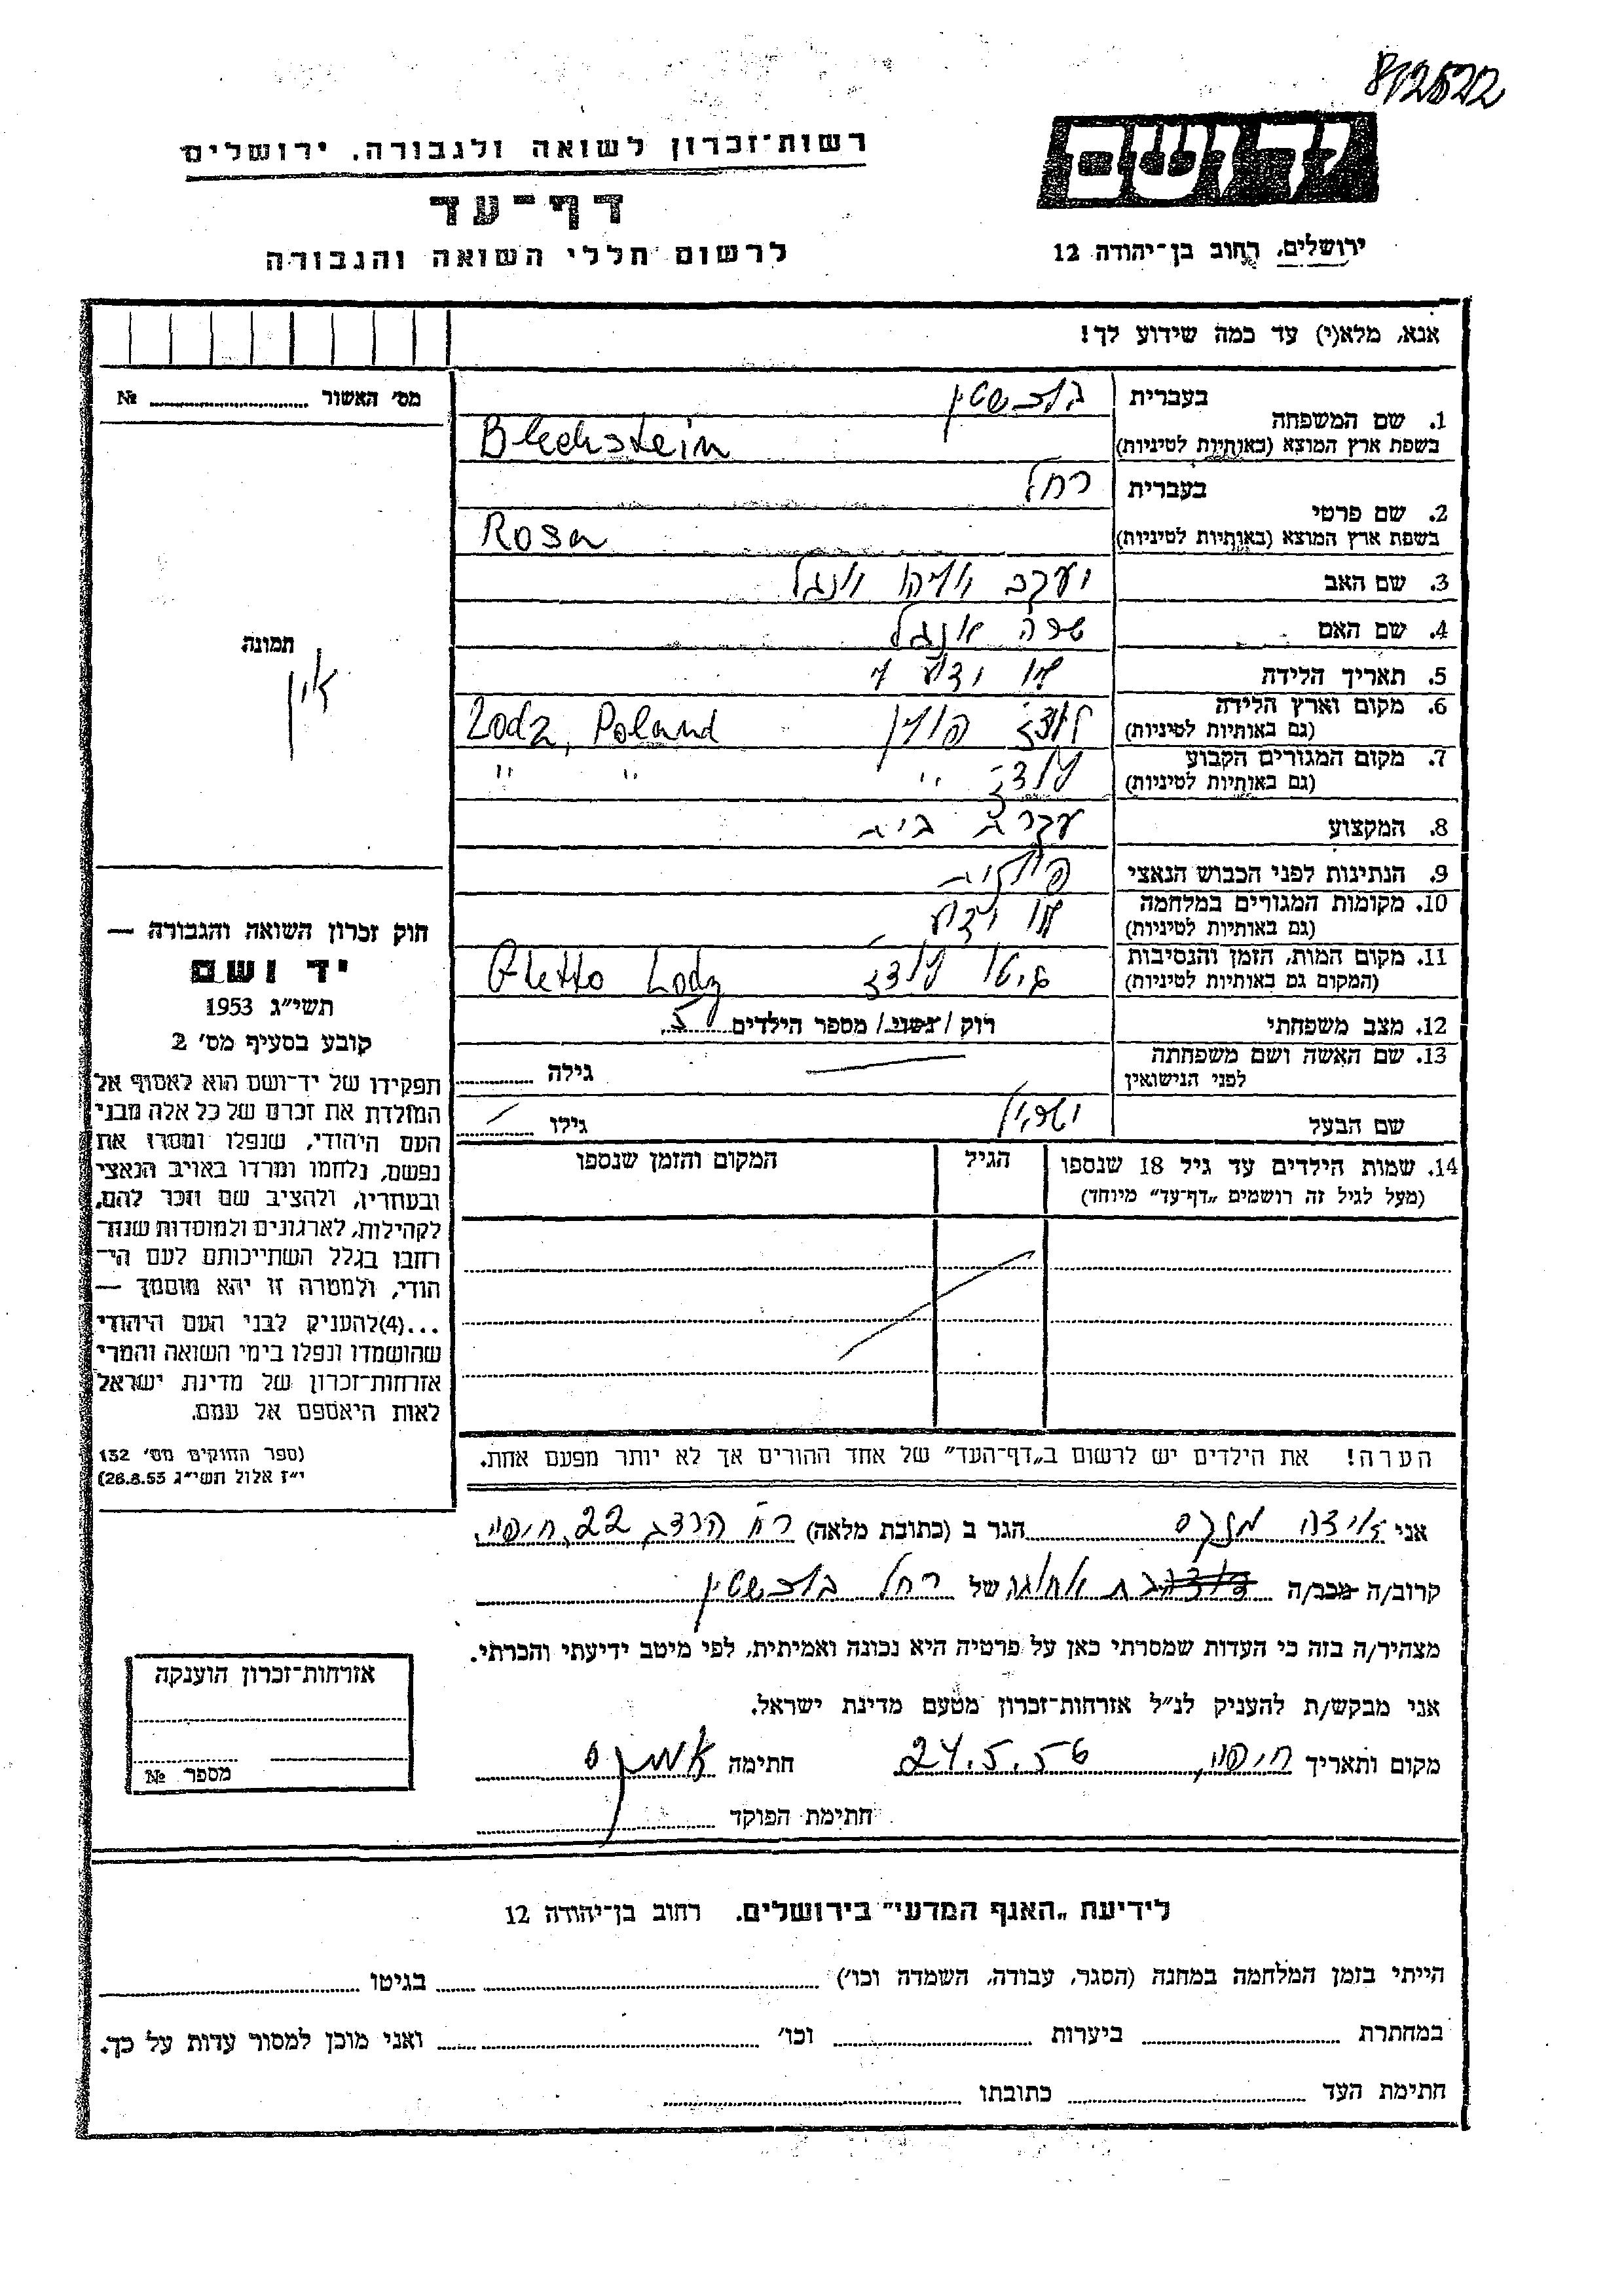 812522
יד ושם
רשות־זכרון לשואה ולגבורה, ירושלים
דף־עד
לרשום חללי השואה והגבורה
ירושלים, רחוב בן־יהודה 12
אנא, מלא(י) עד כמה שידוע לך!
מס׳ האשור № 
1. שם המשפחה
בעברית בלכשטין
בשפת ארץ המוצא (באותיות לטיניות) Blechstein
2. שם פרטי
בעברית רחל
בשפת ארץ המוצא (באותיות לטיניות) Rosa
3. שם האב יעקב
4. שם האם שרה
5. תאריך הלידה לא ידוע לי
6. מקום וארץ הלידה
(גם באותיות לטיניות) לודז פולין Lodz, Poland
7. מקום המגורים הקבוע
(גם באותיות לטיניות) לודז " " "
8. המקצוע עקרת בית
9. הנתינות לפני הכבוש הנאצי פולנית
10. מקומות המגורים במלחמה
(גם באותיות לטיניות) לא ידוע
11. מקום המות, הזמן והנסיבות
(המקום גם באותיות לטיניות) גיטו לודז Ghetto Lodz
12. מצב משפחתי רוק / נשוי / מספר הילדים 5
13. שם האשה ושם משפחתה
לפני הנישואין גילה
שם הבעל ישראל גילו
14. שמות הילדים עד גיל 18 שנספו הגיל המקום והזמן שנספו
(מעל לגיל זה רושמים „דף־עד״ מיוחד)
הערה! את הילדים יש לרשום ב„דף־העד״ של אחד ההורים אך לא יותר מפעם אחת.
תמונה
אין
חוק זכרון השואה והגבורה —
יד ושם
תשי״ג 1953
קובע בסעיף מס׳ 2
תפקידו של יד־ושם הוא לאסוף אל
המולדת את זכרם של כל אלה מבני
העם היהודי, שנפלו ומסרו את
נפשם, נלחמו ומרדו באויב הנאצי
ובעוזריו, ולהציב שם וזכר להם,
לקהילות, לארגונים ולמוסדות שנח־
רחבו בגלל השתייכותם לעם הי־
הודי, ולמטרה זו יהא מוסמך —
...(4)להעניק לבני העם היהודי
שהושמדו ונפלו בימי השואה והמרי
אזרחות־זכרון של מדינת ישראל
לאות היאספם אל עמם.
(ספר החוקים מס׳ 132
י״ז אלול תשי״ג 28.8.53)
אני הגר ב (כתובת מלאה) 22 חיפה
קרוב/ה מכר/ה בת אחותה של רחל בלכשטין
מצהיר/ה בזה כי העדות שמסרתי כאן על פרטיה היא נכונה ואמיתית, לפי מיטב ידיעתי והכרתי.
אני מבקש/ת להעניק לנ״ל אזרחות־זכרון מטעם מדינת ישראל.
מקום ותאריך חיפה, 24.5.56 חתימה
חתימת הפוקד
אזרחות־זכרון הוענקה
מספר №
לידיעת „האגף המדעי״ בירושלים. רחוב בן־יהודה 12
הייתי בזמן המלחמה במחנה (הסגר, עבודה, השמדה וכו׳) בגיטו
במחתרת ביערות וכו׳ ואני מוכן למסור עדות על כך.
חתימת העד כתובתו